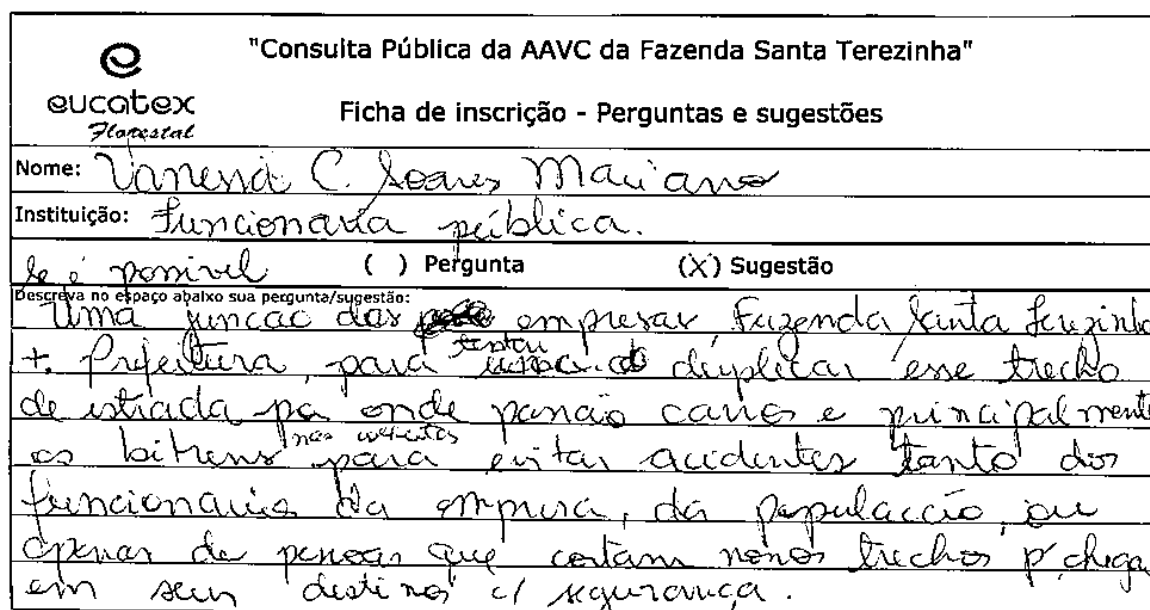 "Consulta Pública da AAVC da Fazenda Santa Terezinha"
eucatex
Florestal
Ficha de inscrição - Perguntas e sugestões
Nome: Vanessa C. Soares Mariano
Instituição: Funcionaria pública.
Se é possivel ( ) Pergunta (X) Sugestão
Descreva no espaço abaixo sua pergunta/sugestão:
Uma juncao das empresas Fazenda Santa Terezinha
+ Prefeitura, para tentar duplicar esse trecho
de estrada por onde passão carros e principalmente
os bitrens para evitar accidentes tanto dos
funcionarios da empresa, da populaccão, ou
apenas de pessoas que cortam nossos trechos p' chega
em seus destinos c/ segurança.